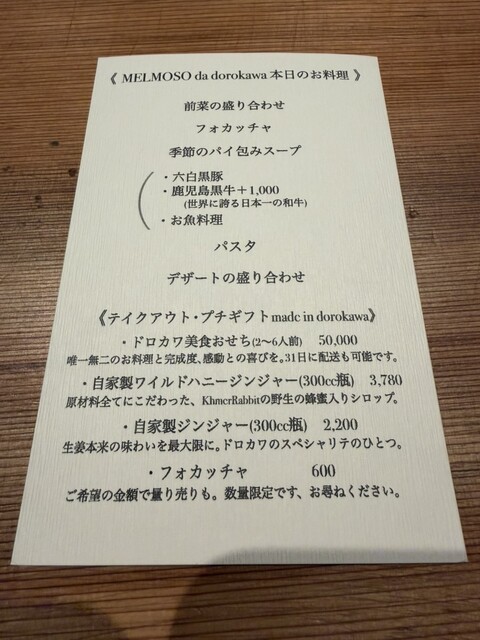 《 MELMOSO da dorokawa 本日のお料理 》
前菜の盛り合わせ
フォカッチャ
季節のパイ包みスープ
・六白黒豚
・鹿児島黒牛＋1,000
(世界に誇る日本一の和牛)
・お魚料理
パスタ
デザートの盛り合わせ
《テイクアウト・プチギフト made in dorokawa》
・ドロカワ美食おせち(2〜6人前) 50,000
唯一無二のお料理と完成度、感動との喜びを。31日に配送も可能です。
・自家製ワイルドハニージンジャー(300cc瓶) 3,780
原材料全てにこだわった、KhmerRabbitの野生の蜂蜜入りシロップ。
・自家製ジンジャー(300cc瓶) 2,200
生姜本来の味わいを最大限に。ドロカワのスペシャリテのひとつ。
・フォカッチャ 600
ご希望の金額で量り売りも。数量限定です、お尋ねください。